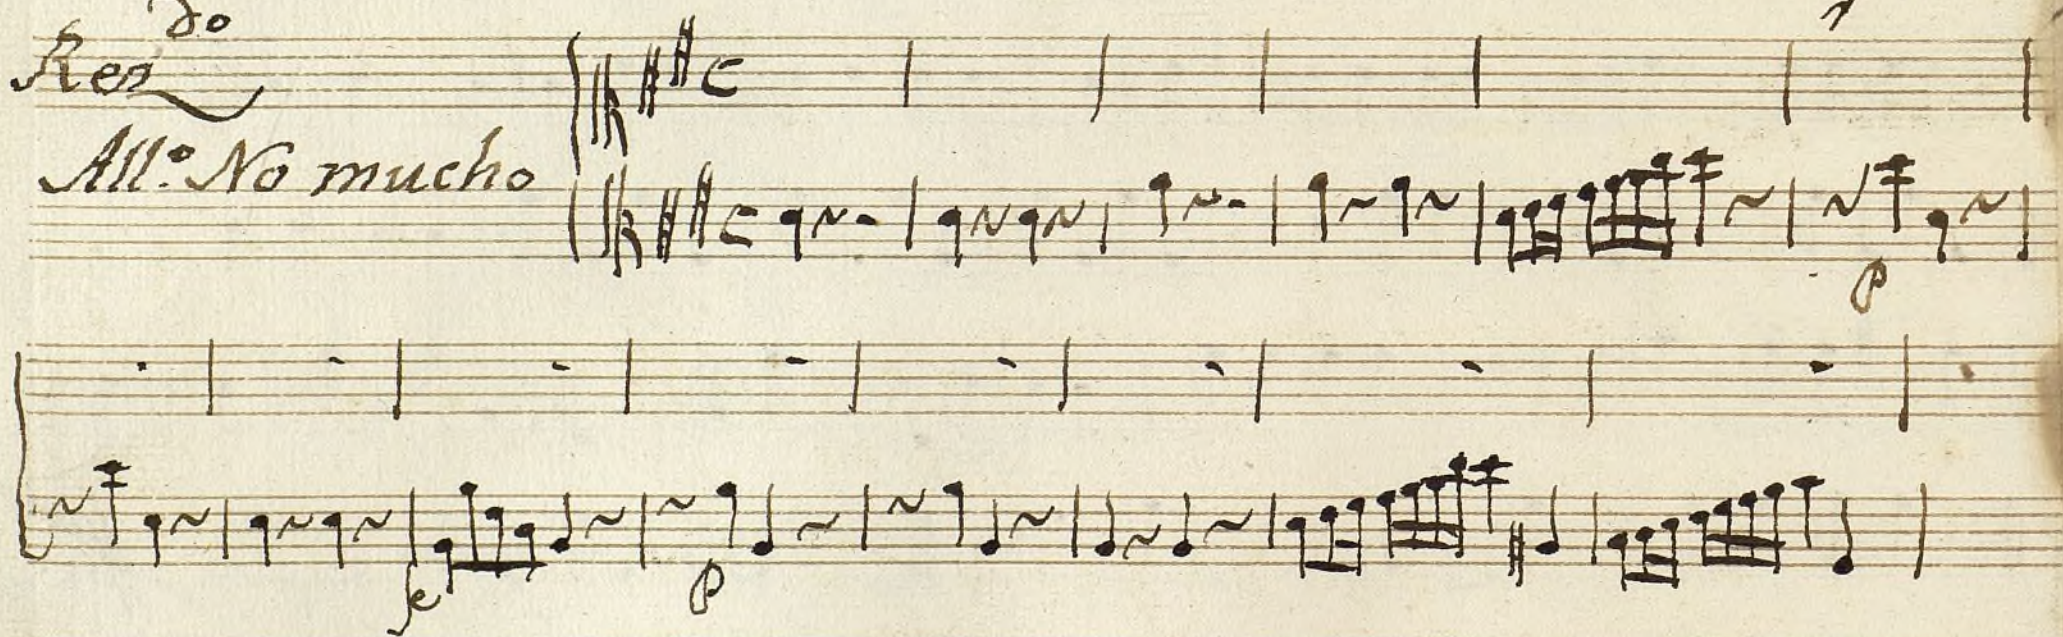 Ren do
All.o No mucho
p
fe
p